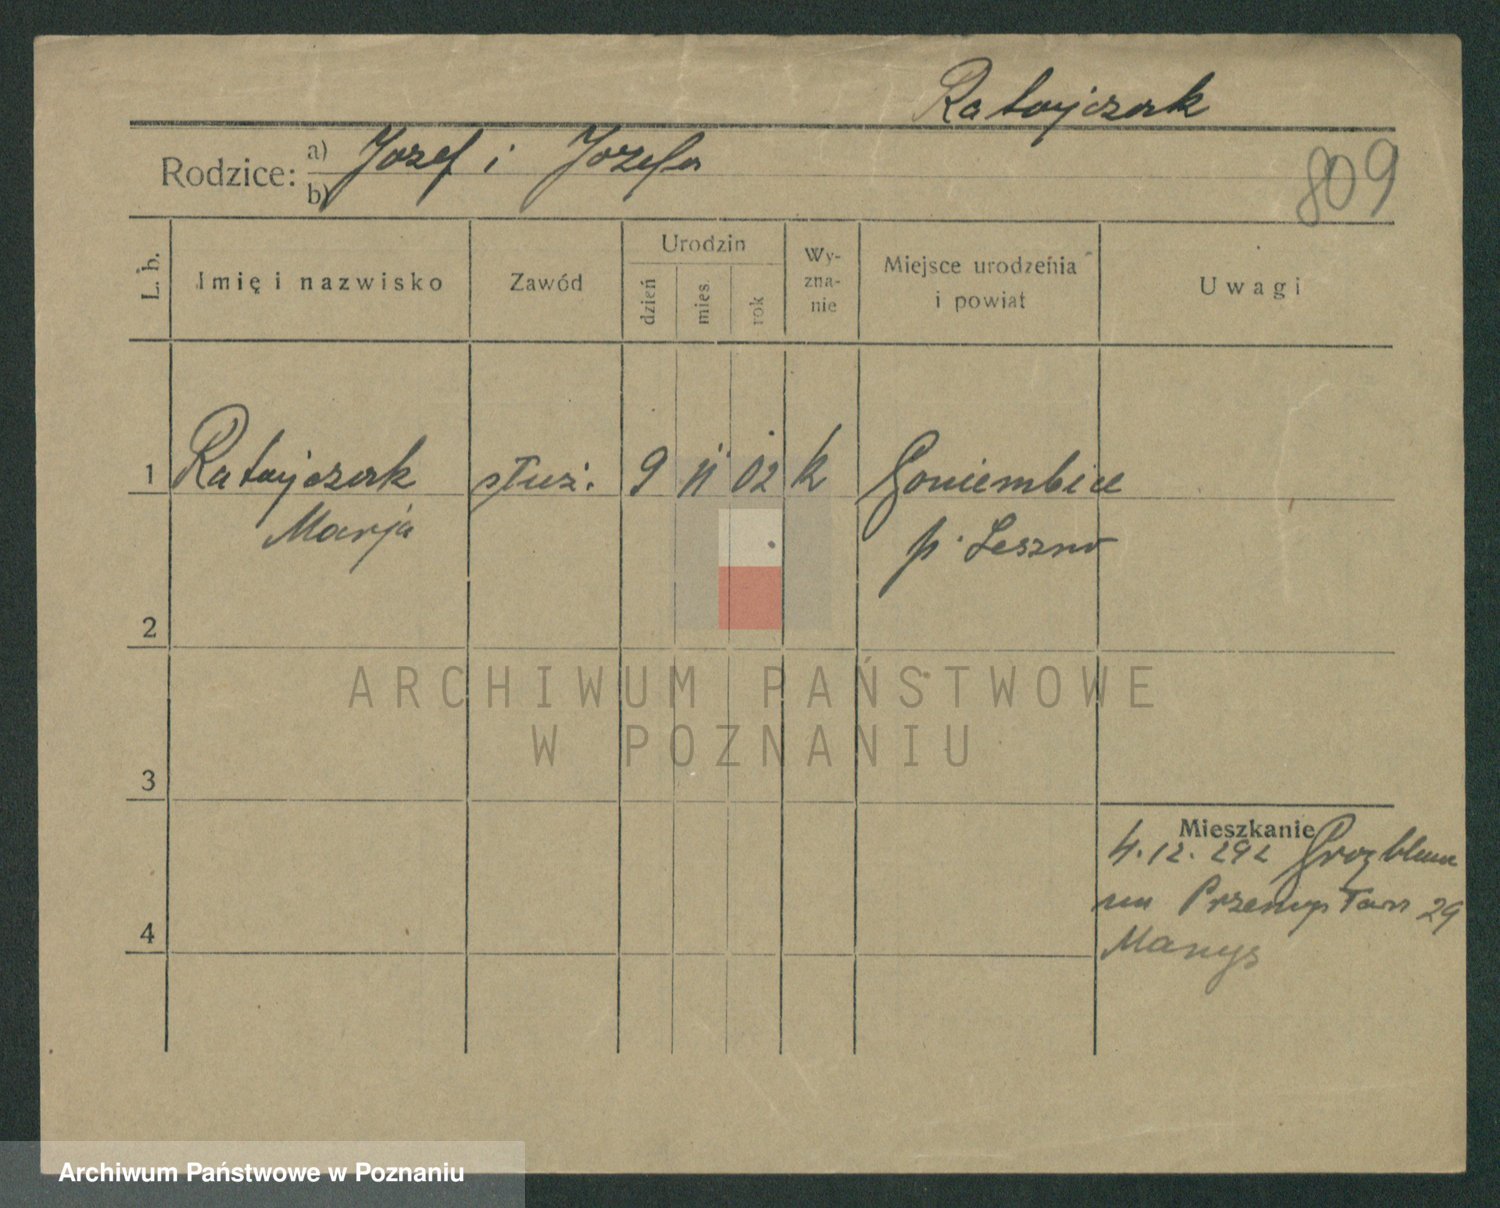 Ratajczak
Rodzice: a) Józef i Józefa
b)
809
L. b.
Imię i nazwisko
Zawód
Urodzin
dzień
mies.
rok
Wy-
zna-
nie
Miejsce urodzenia
i powiat
Uwagi
1 Ratajczak służ. 9 11 02 k Goniembice
Marja p. Leszno
2
ARCHIWUM PAŃSTWOWE
W POZNANIU
3
Mieszkanie
4.12.
Przemysław 29
4
Archiwum Państwowe w Poznaniu